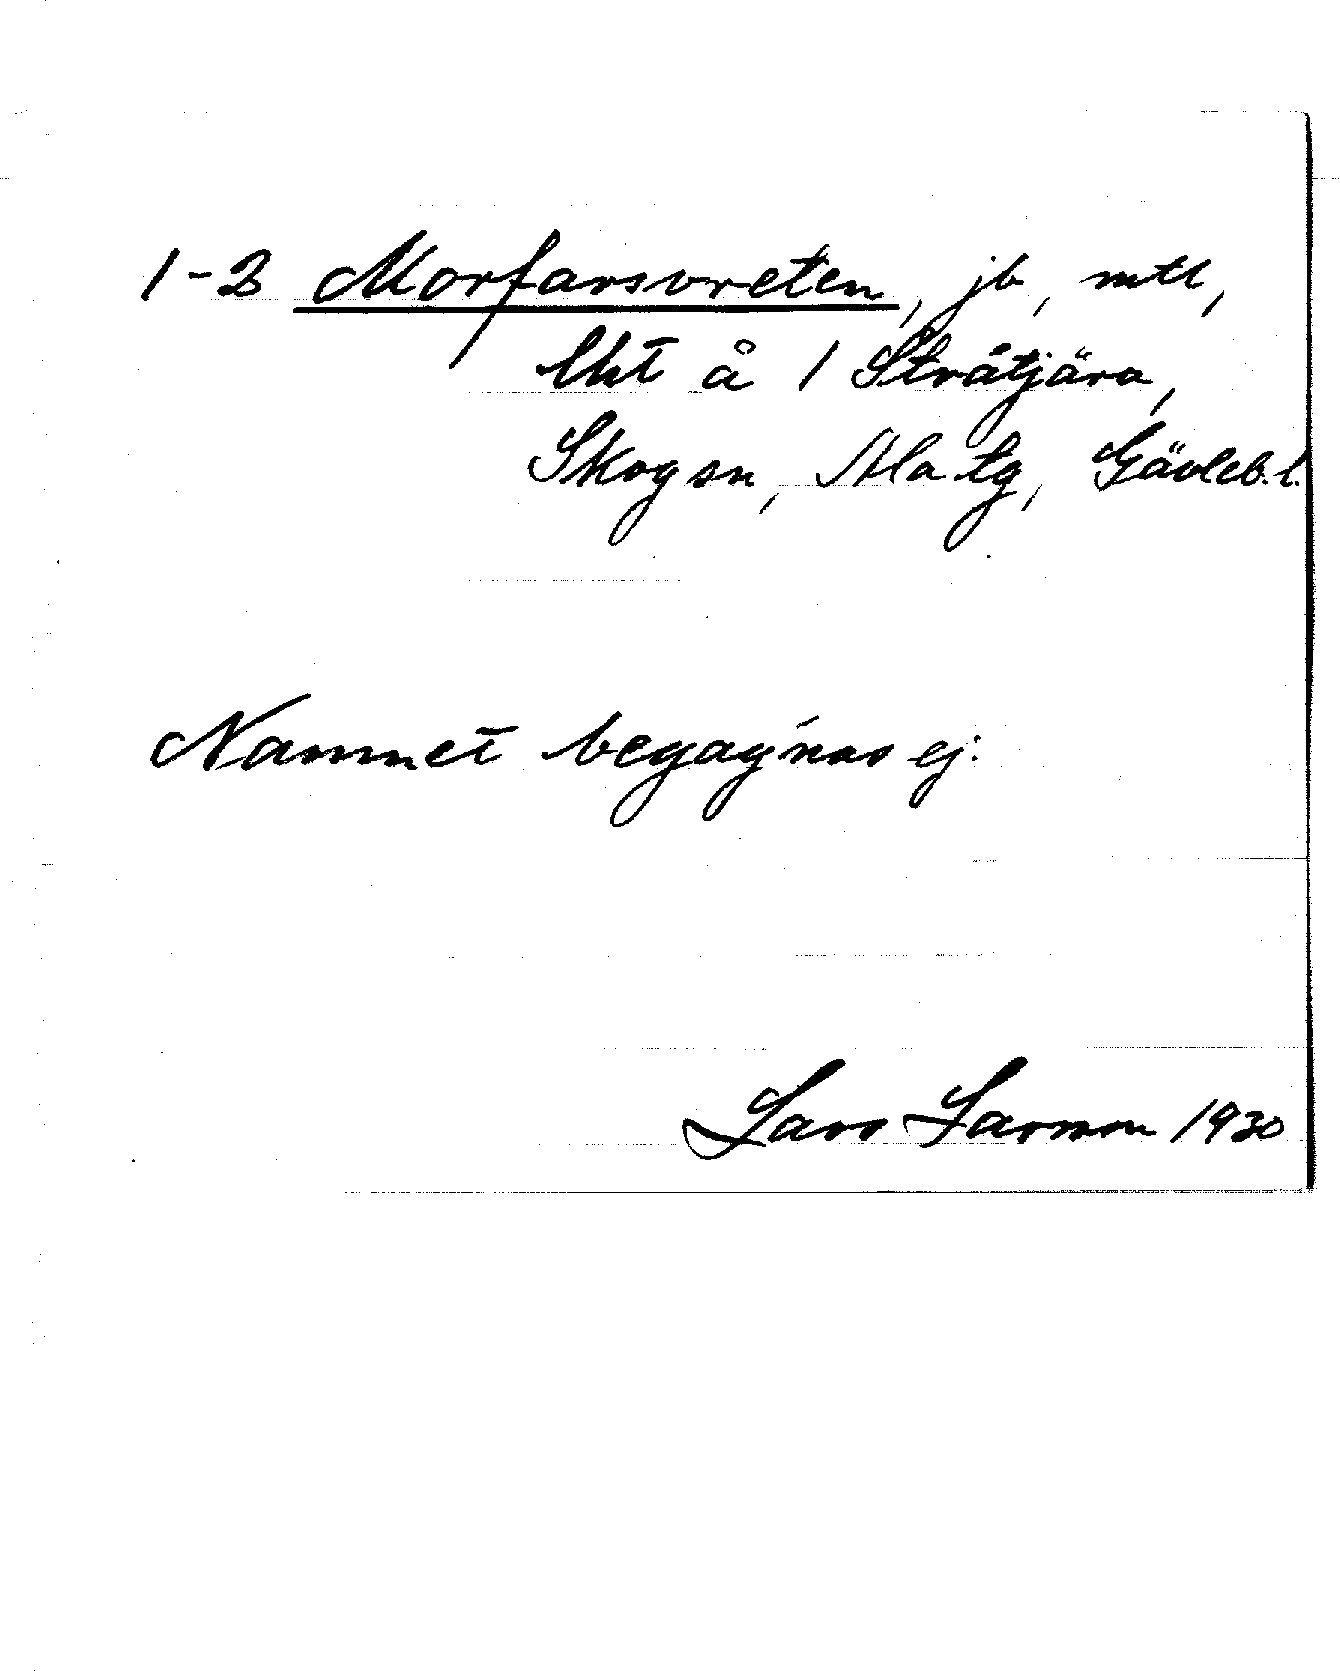 1-2 Morfarsvreten, jb, mtl,
lht å 1 Stråtjära,
Skog sn, Ala tg, Gävleb. l.
Namnet begagnas ej.
Lars Larsson 1930